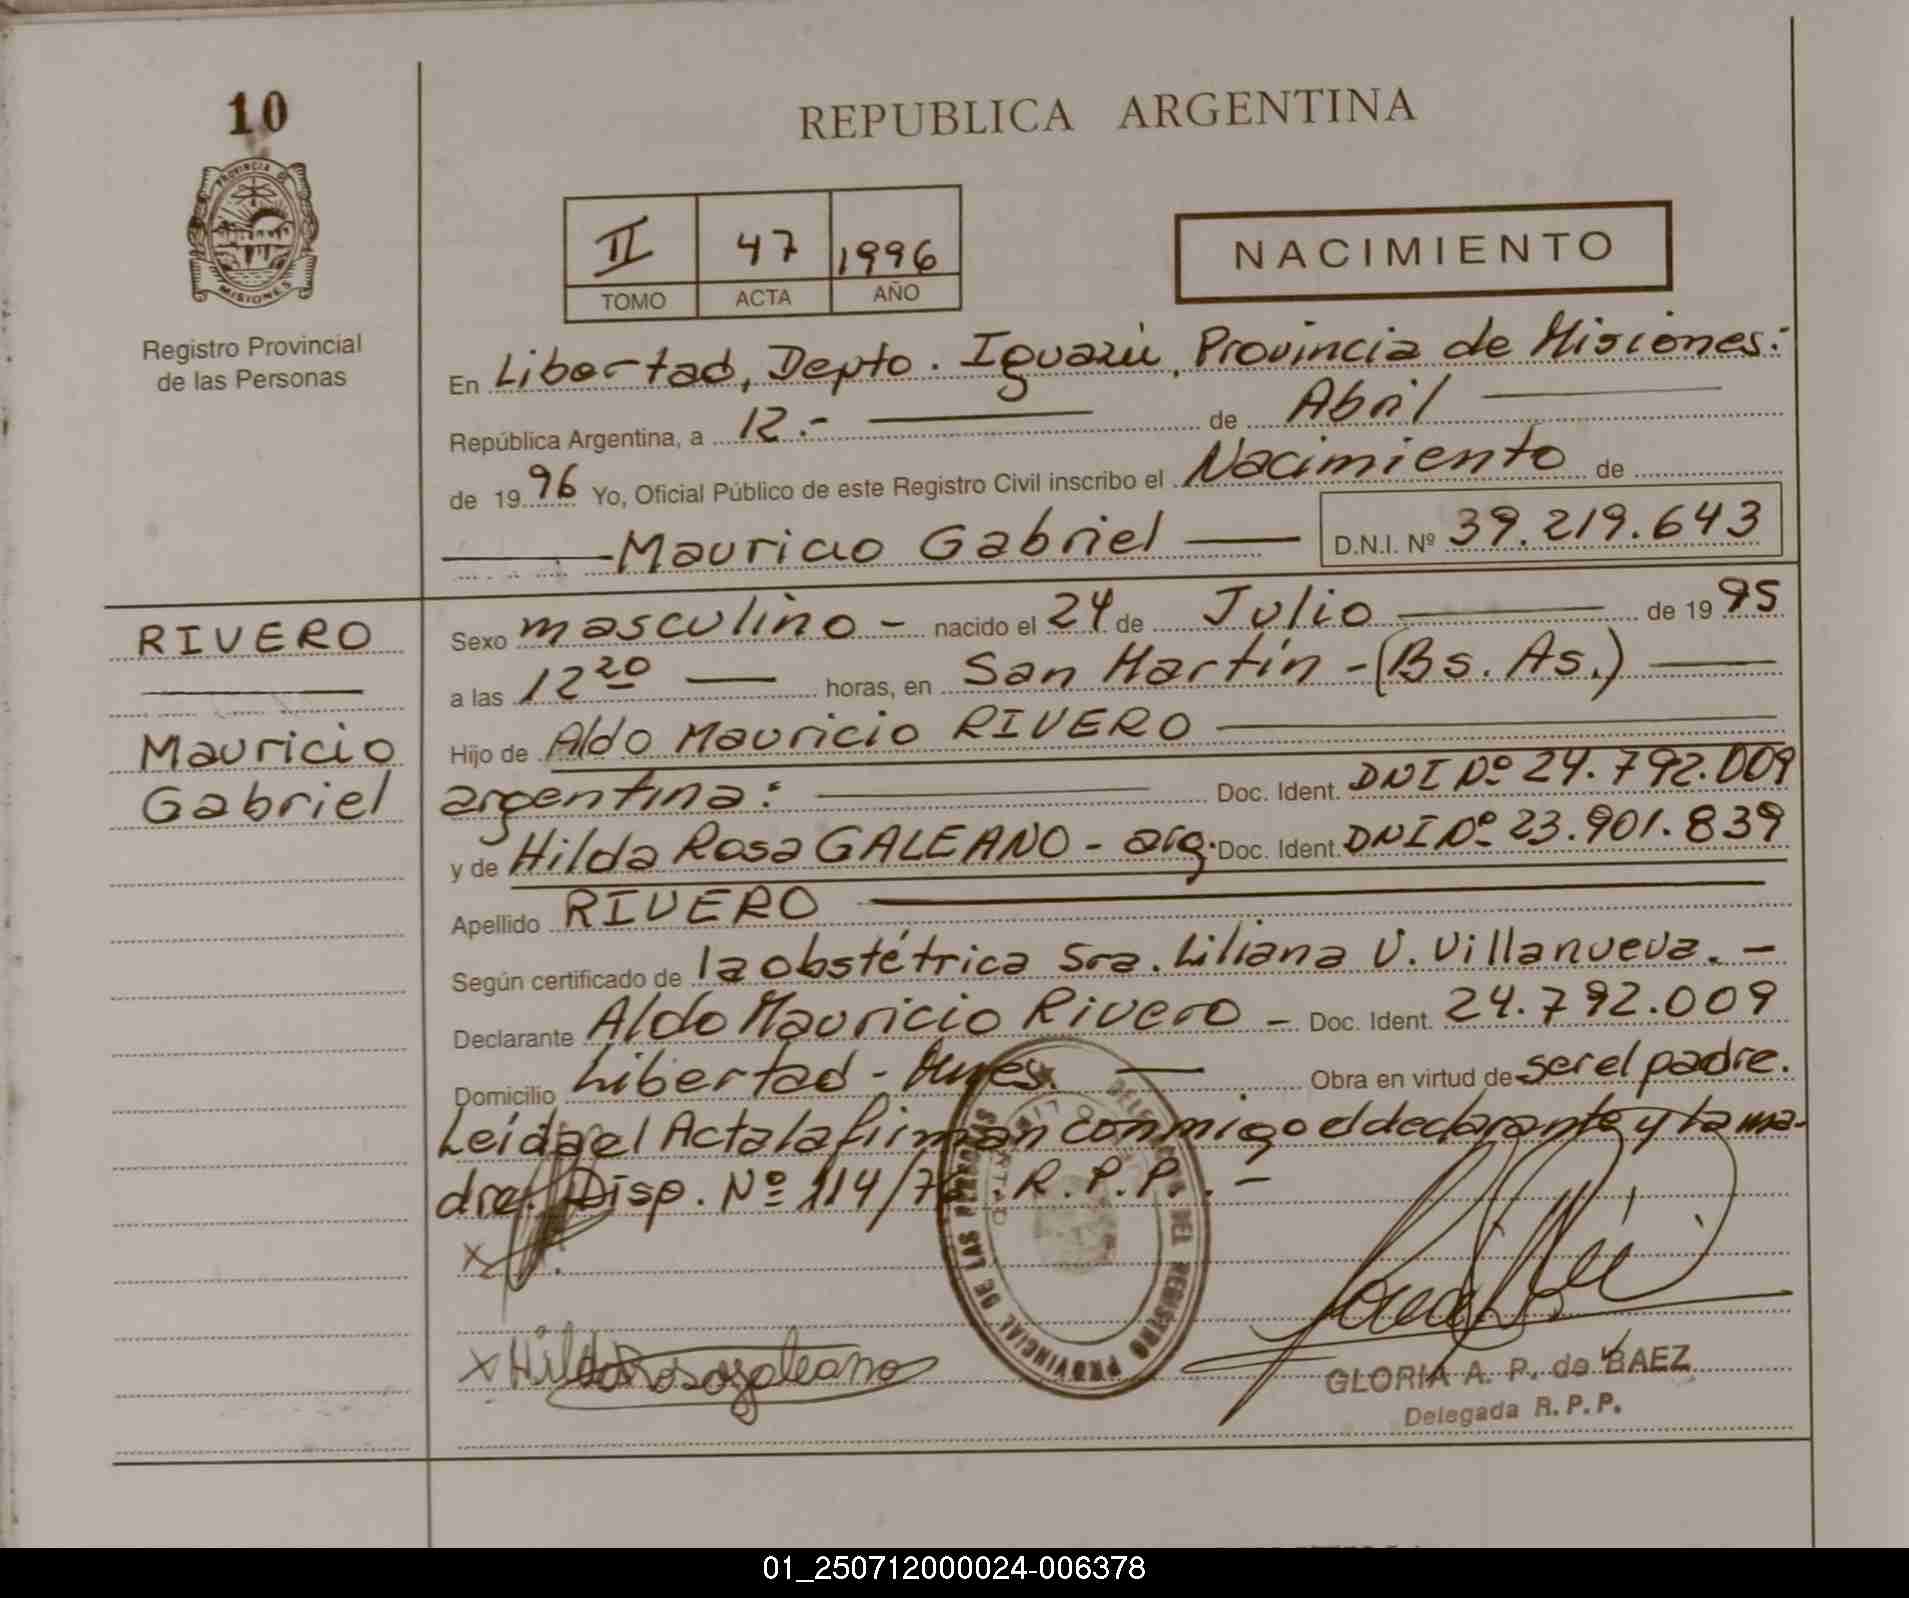 10
PROVINCIA DE
MISIONES
Registro Provincial
de las Personas
REPUBLICA ARGENTINA
II 47 1996
TOMO ACTA AÑO
NACIMIENTO
En Libertad, Depto. Iguazú, Provincia de Misiones:-
República Argentina, a 12.- de Abril
de 1996 Yo, Oficial Público de este Registro Civil inscribo el Nacimiento de
Mauricio Gabriel D.N.I. Nº 39.219.643
RIVERO
Mauricio
Gabriel
Sexo masculino - nacido el 24 de Julio de 1995
a las 12 20 horas, en San Martín - (Bs. As.)
Hijo de Aldo Mauricio RIVERO
argentina: Doc. Ident. DNI Nº 24.792.009
y de Hilda Rosa GALEANO - arg. Doc. Ident. DNI Nº 23.901.839
Apellido RIVERO
Según certificado de la obstétrica Sra. Liliana V. Villanueva. -
Declarante Aldo Mauricio Rivero - Doc. Ident. 24.792.009
Domicilio Libertad - Mnes. Obra en virtud de ser el padre.
Leída el Acta la firman conmigo el declarante y la ma-
dre. Disp. Nº 114/ R.P.P. -
x
x Hilda Rosa galeano
DELEGACION DEL REGISTRO PROVINCIAL DE LAS PERSONAS
LIBERTAD
GLORIA A. P. de BAEZ
Delegada R. P. P.
01_250712000024-006378